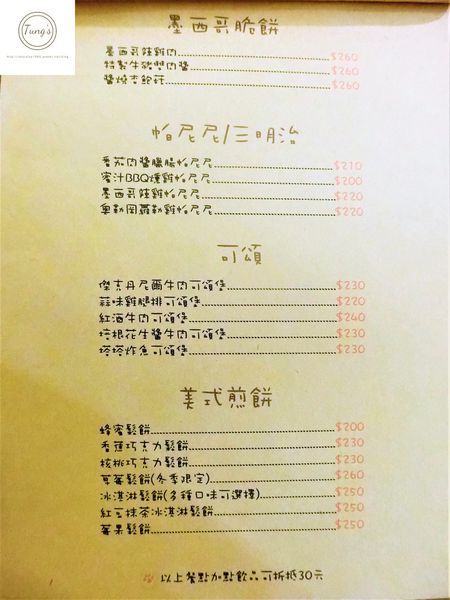 Tung's
墨西哥脆餅
墨西哥辣雞肉 $260
特製牛豬雙肉醬 $260
醬燒杏鮑菇 $260
帕尼尼/三明治
番茄肉醬臘腸帕尼尼 $210
蜜汁BBQ燻雞帕尼尼 $200
墨西哥辣雞帕尼尼 $220
奧勒岡羅勒雞帕尼尼 $220
可頌
傑克丹尼爾牛肉可頌堡 $230
蒜味雞腿排可頌堡 $220
紅酒牛肉可頌堡 $240
培根花生醬牛肉可頌堡 $230
塔塔炸魚可頌堡 $230
美式煎餅
蜂蜜鬆餅 $200
香蕉巧克力鬆餅 $230
核桃巧克力鬆餅 $230
草莓鬆餅(冬季限定) $260
冰淇淋鬆餅(多種口味可選擇) $250
紅豆抹茶冰淇淋鬆餅 $250
莓果鬆餅 $250
以上餐點加點飲品可折抵30元